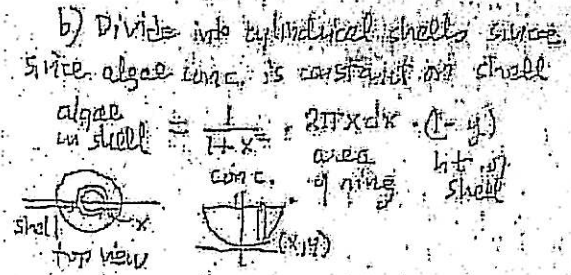 b) Divide into cylindrical shells since
since algae conc. is constant on shell
algae in shell = 1/(1+x²) · 2πx dx · (1-y)
conc. area of ring ht. of shell
shell x (x,y)
top view